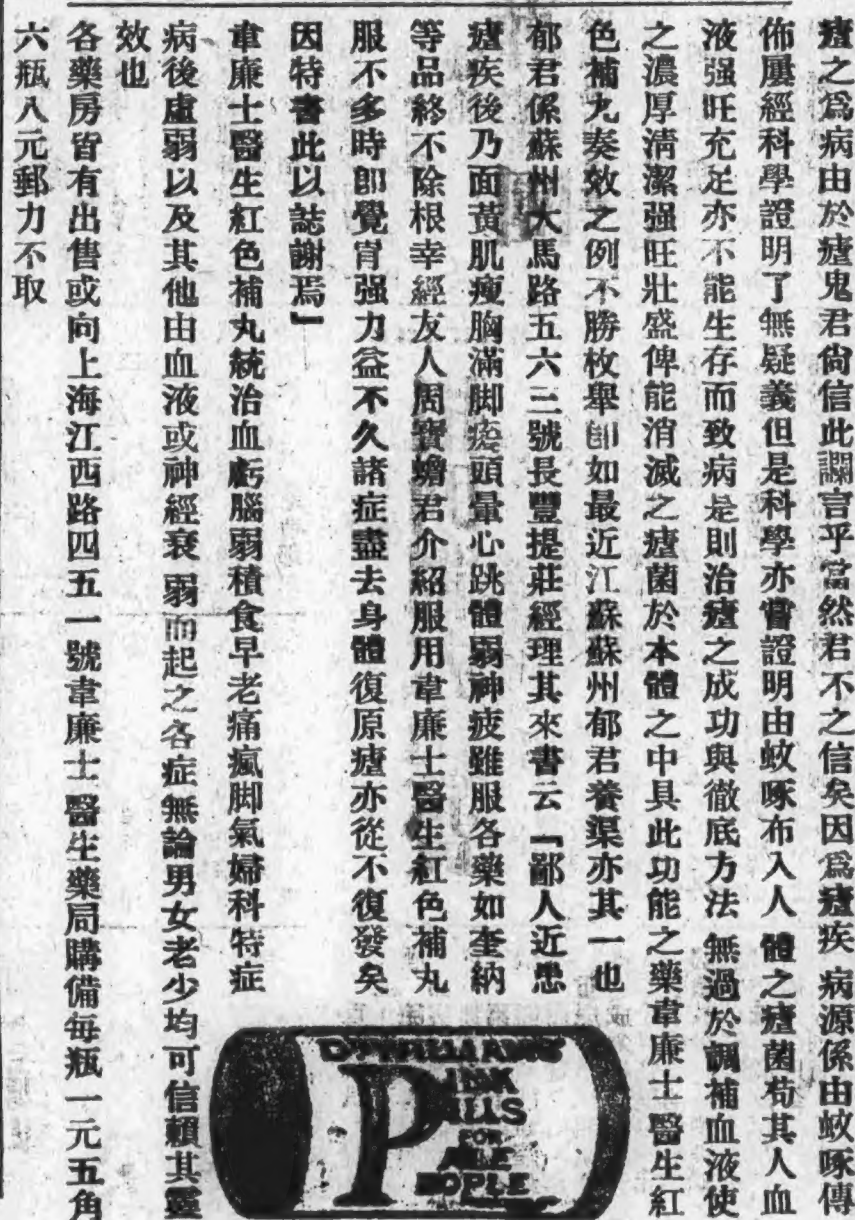 瘧之爲病由於瘧鬼君尙信此讕言乎當然君不之信矣因爲瘧疾病源係由蚊啄傳
佈屢經科學證明了無疑義但是科學亦嘗證明由蚊啄布入人體之瘧菌苟其人血
液强旺充足亦不能生存而致病是則治瘧之成功與徹底方法無過於調補血液使
之濃厚清潔强旺壯盛俾能消滅之瘧菌於本體之中具此功能之藥韋廉士醫生紅
色補丸奏效之例不勝枚舉卽如最近江蘇蘇州郁君養渠亦其一也
郁君係蘇州大馬路五六三號長豐提莊經理其來書云「鄙人近患
瘧疾後乃面黃肌瘦胸滿脚痠頭暈心跳體弱神疲雖服各藥如奎納
等品終不除根幸經友人周寶蟾君介紹服用韋廉士醫生紅色補丸
服不多時卽覺胃强力益不久諸症盡去身體復原瘧亦從不復發矣
因特書此以誌謝焉」
韋廉士醫生紅色補丸統治血虧腦弱積食早老痛瘋脚氣婦科特症
病後虛弱以及其他由血液或神經衰弱而起之各症無論男女老少均可信賴其靈
效也
各藥房皆有出售或向上海江西路四五一號韋廉士醫生藥局購備每瓶一元五角
六瓶八元郵力不取
DR WILLIAMS
PINK
PILLS
FOR
PALE
PEOPLE